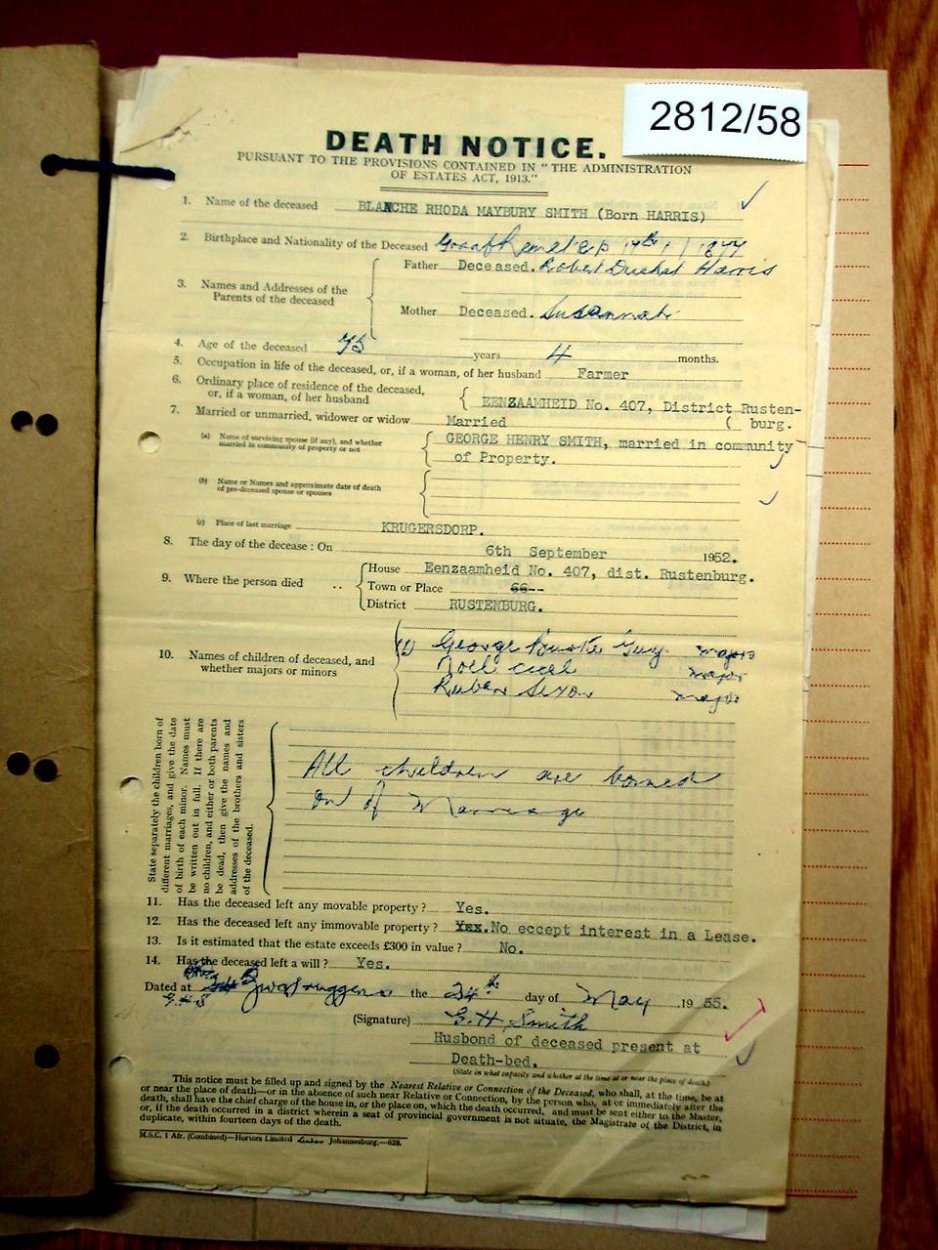 2812/58
DEATH NOTICE.
PURSUANT TO THE PROVISIONS CONTAINED IN "THE ADMINISTRATION
OF ESTATES ACT, 1913."
1. Name of the deceased BLANCHE RHODA MAYBURY SMITH (Born HARRIS)
2. Birthplace and Nationality of the Deceased Graaf Reinet 1877
3. Names and Addresses of the Parents of the deceased
Father Deceased. Robert Harris
Mother Deceased. Susannah
4. Age of the deceased 75 years 4 months.
5. Occupation in life of the deceased, or, if a woman, of her husband Farmer
6. Ordinary place of residence of the deceased,
or, if a woman, of her husband EENZAAMHEID No. 407, District Rusten-
7. Married or unmarried, widower or widow Married ( burg.
(a) Name of surviving spouse (if any), and whether GEORGE HENRY SMITH, married in community
married in community of property or not of Property.
(b) Name or Names and approximate date of death
of pre-deceased spouse or spouses
(c) Place of last marriage KRUGERSDORP.
8. The day of the decease : On 6th September 1952.
9. Where the person died ..
House Eenzaamheid No. 407, dist. Rustenburg.
Town or Place 66--
District RUSTENBURG.
10. Names of children of deceased, and
whether majors or minors
(1) George Guy major
Noel Cecil major
Ruben major
State separately the children born of
different marriages, and give the date
of birth of each minor. Names must
be written out in full. If there are
no children, and either or both parents
be dead, then give the names and
addresses of the brothers and sisters
of the deceased.
All children are borned
out of Marriage
11. Has the deceased left any movable property? Yes.
12. Has the deceased left any immovable property? Yes. No eccept interest in a Lease.
13. Is it estimated that the estate exceeds £300 in value? No.
14. Has the deceased left a will? Yes.
Dated at Zwartruggens the 24th day of May 1955.
(Signature) G.H. Smith
Husbond of deceased present at
Death-bed.
(State in what capacity and whether at the time at or near the place of death.)
This notice must be filled up and signed by the Nearest Relative or Connection of the Deceased, who shall, at the time, be at
or near the place of death—or in the absence of such near Relative or Connection, by the person who, at or immediately after the
death, shall have the chief charge of the house in, or the place on, which the death occurred, and must be sent either to the Master,
or, if the death occurred in a district wherein a seat of provincial government is not situate, the Magistrate of the District, in
duplicate, within fourteen days of the death.
M.S.C. 1 Afr. (Combined)—Hortors Limited Johannesburg.—628.